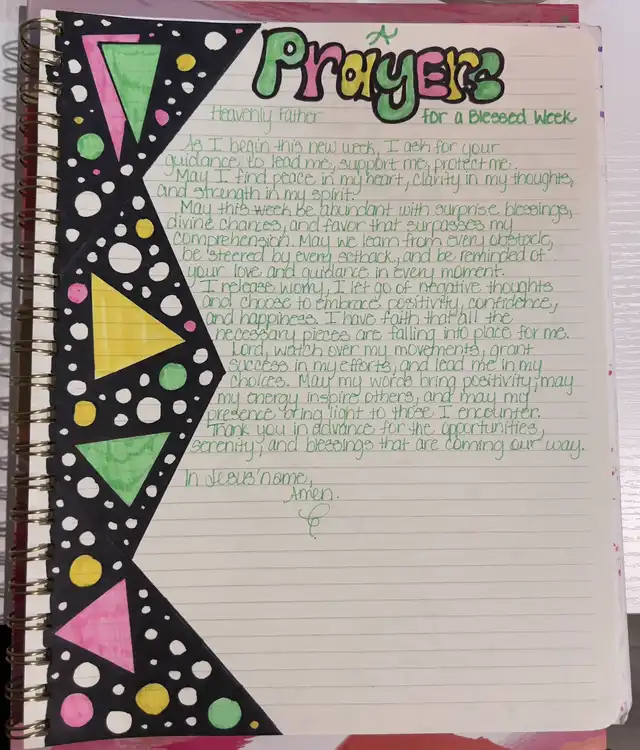 A
Prayers
Heavenly Father
for a Blessed Week
As I begin this new week, I ask for your
guidance, to lead me, support me, protect me.
May I find peace in my heart, clarity in my thoughts,
and strength in my spirit.
May this week be abundant with surprise blessings,
divine chances, and favor that surpasses my
comprehension. May we learn from every obstacle,
be steered by every setback, and be reminded of
your love and guidance in every moment.
I release worry, I let go of negative thoughts
and choose to embrace positivity, confidence,
and happiness. I have faith that all the
necessary pieces are falling into place for me.
Lord, watch over my movements, grant
success in my efforts, and lead me in my
choices. May my words bring positivity, may
my energy inspire others, and may my
presence bring light to those I encounter.
Thank you in advance for the opportunities,
serenity, and blessings that are coming our way.
In Jesus' name,
Amen.